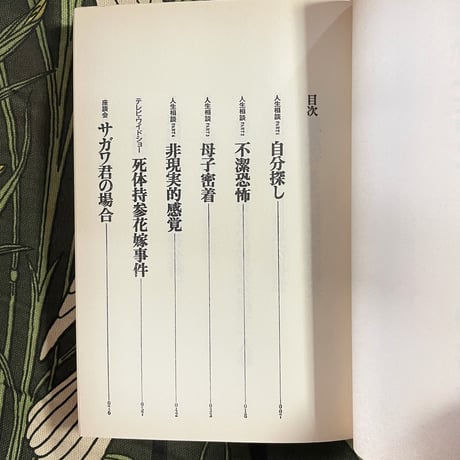 目次
人生相談 PART1 自分探し 007
人生相談 PART2 不潔恐怖 018
人生相談 PART3 母子密着
人生相談 非現実的感覚 042
テレビ・ワイドショー 死体持参花嫁事件
座談会 サガワ君の場合 076